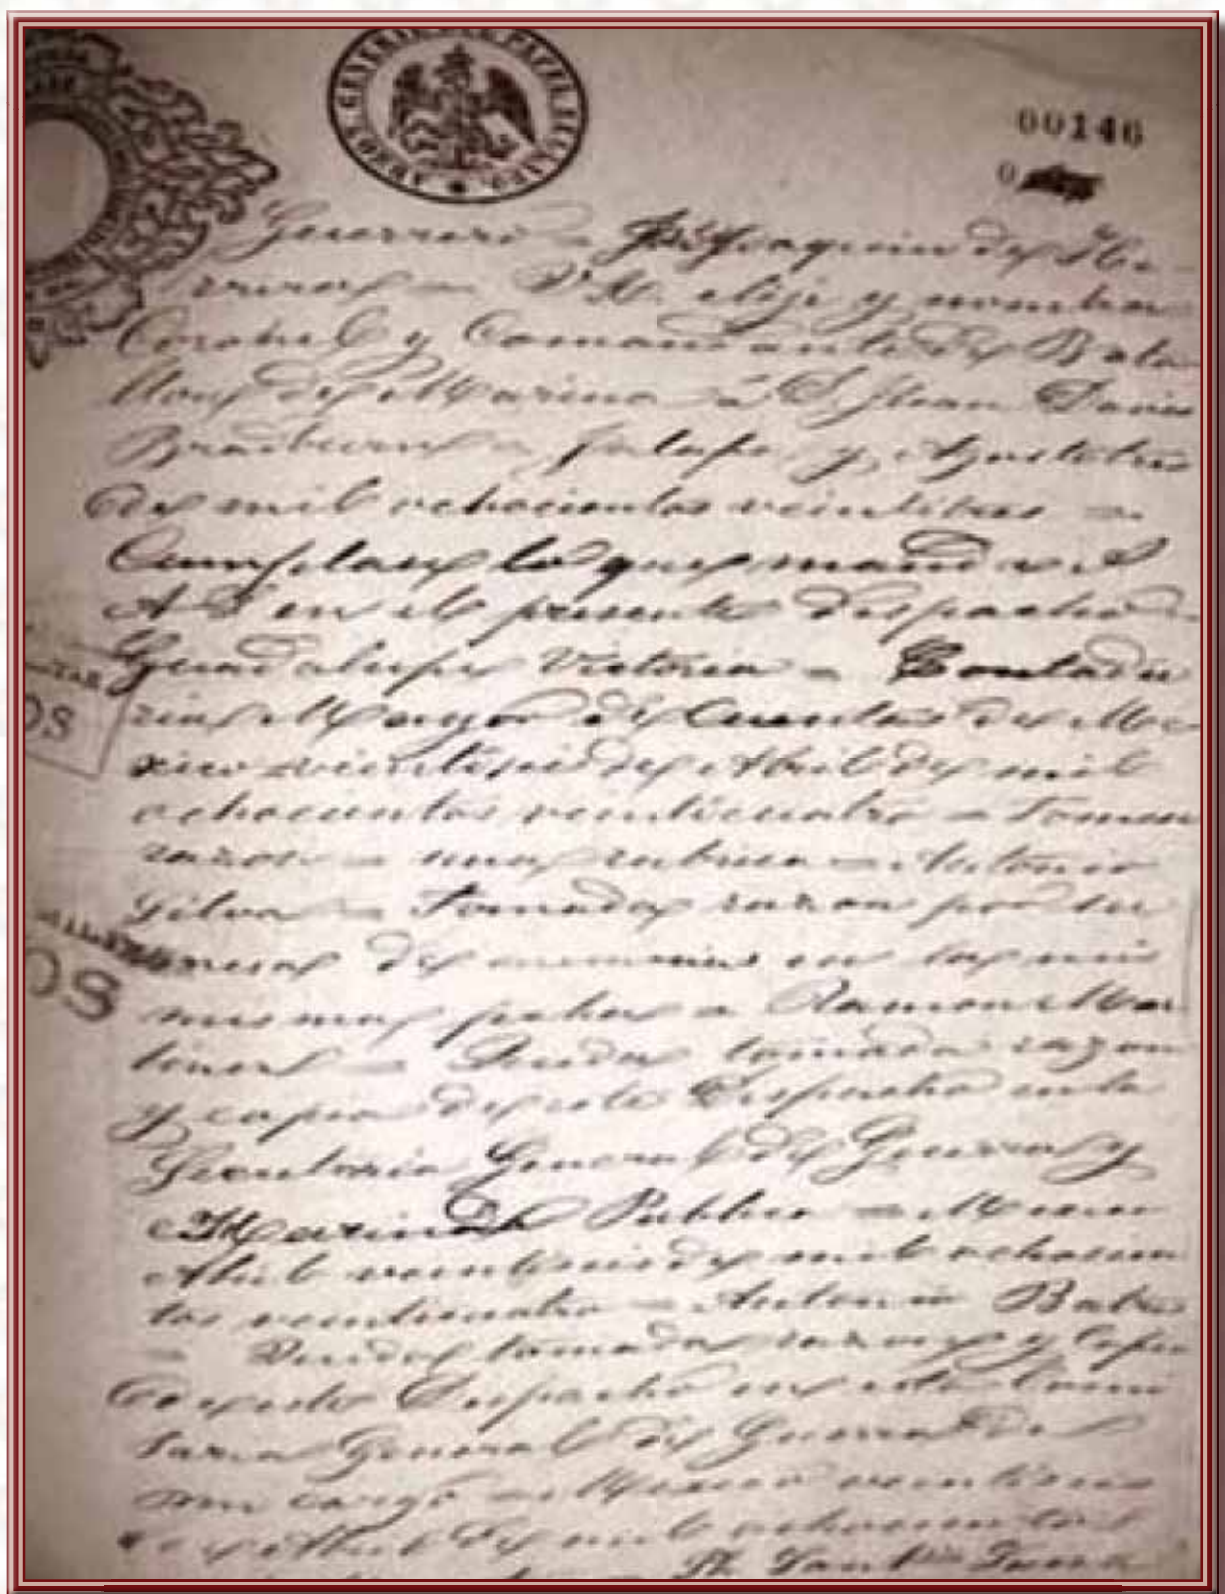 00146
Guerrero = José Joaquin de He-
rreros = V.A. elije y nombra
Coronel y Comandante del Bata
llon de Marina á D. Juan Davis
Bradburn = Jalapa, y Agosto tres
de mil ochocientos veintitres =
Cumplase lo que manda S
A S en el presente despacho =
Guadalupe Victoria = Contadu
ria Mayor de Cuentas de Me
xico veintiseis de Abril de mil
ochocientos veinticuatro = Tomose
razon = una rubrica = Antonio
Silva = Tomada razon por
en las mis
mismas fojas = Ramon Mar
tinez = Queda tomada razon
y copia de este Despacho en la
Secretaria General de Guerra y
Marina Publica = Mexico
Abril veintiseis de mil ochocien
tos veinticuatro = Antonio Batres
= Queda tomada razon y copia
de este Despacho en esta Comi
saria General de Guerra de
mi cargo = Mexico veintiseis
de Abril de mil ochocientos
OS
OS